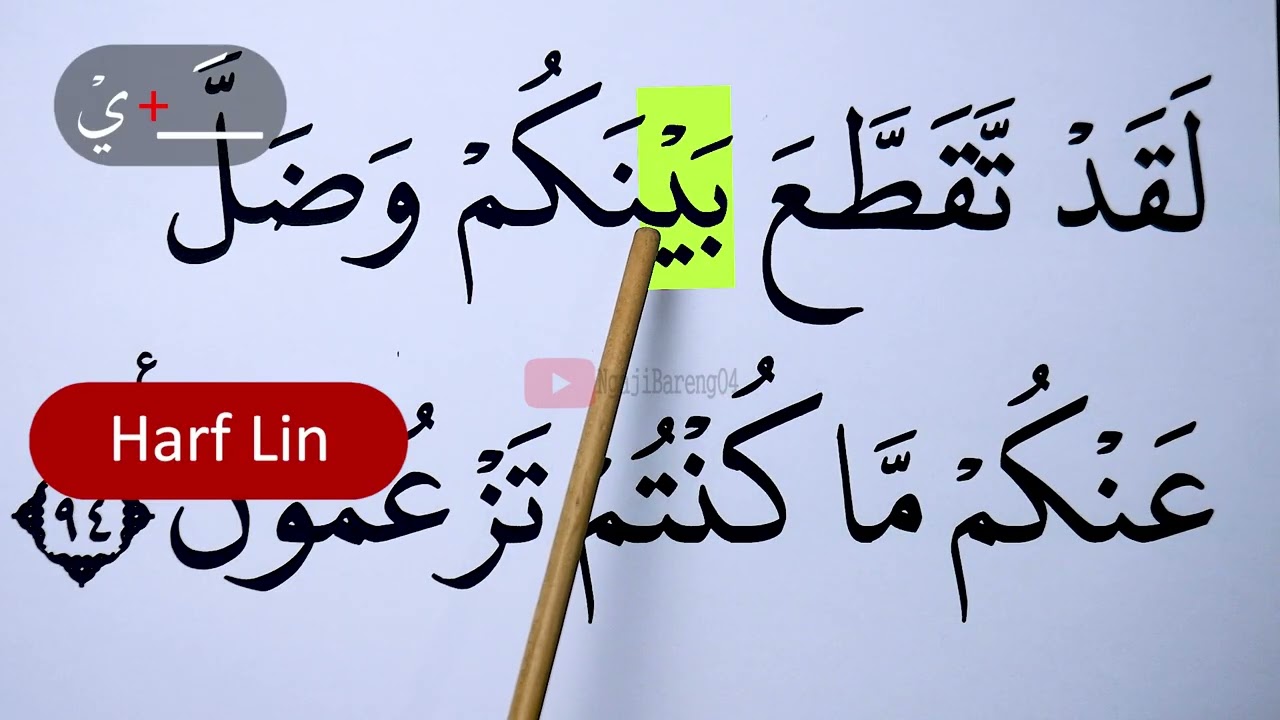 يْ + ـَـ
لَقَدْ تَّقَطَّعَ بَيْنَكُمْ وَضَلَّ
NgajiBareng04
Harf Lin
عَنْكُمْ مَّا كُنْتُمْ تَزْعُمُونَ ٩٤